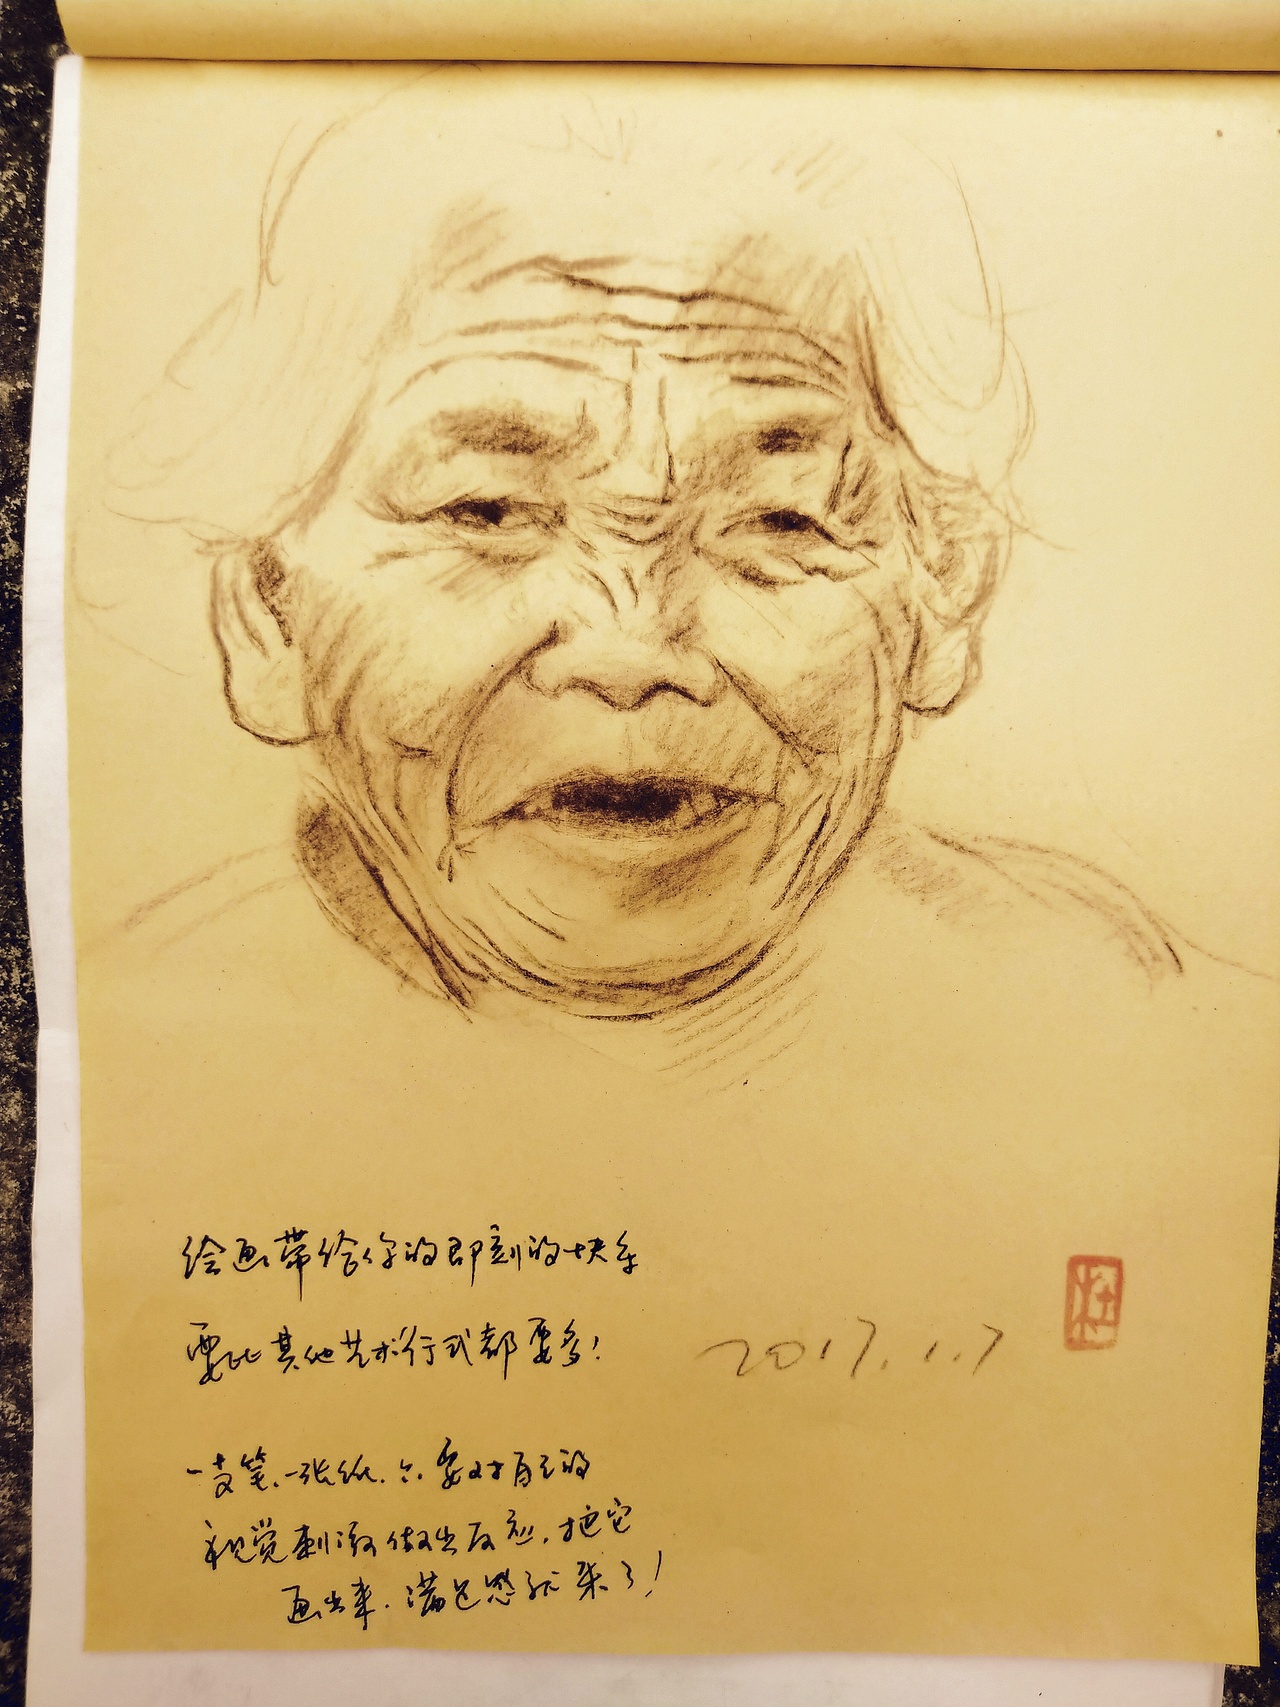 绘画带给你的即刻的快乐
要比其他艺术行式都要多!
2017.1.7
一支笔、一张纸、只要对自己的
视觉刺激做出反应,把它
画出来,满足感就来了!